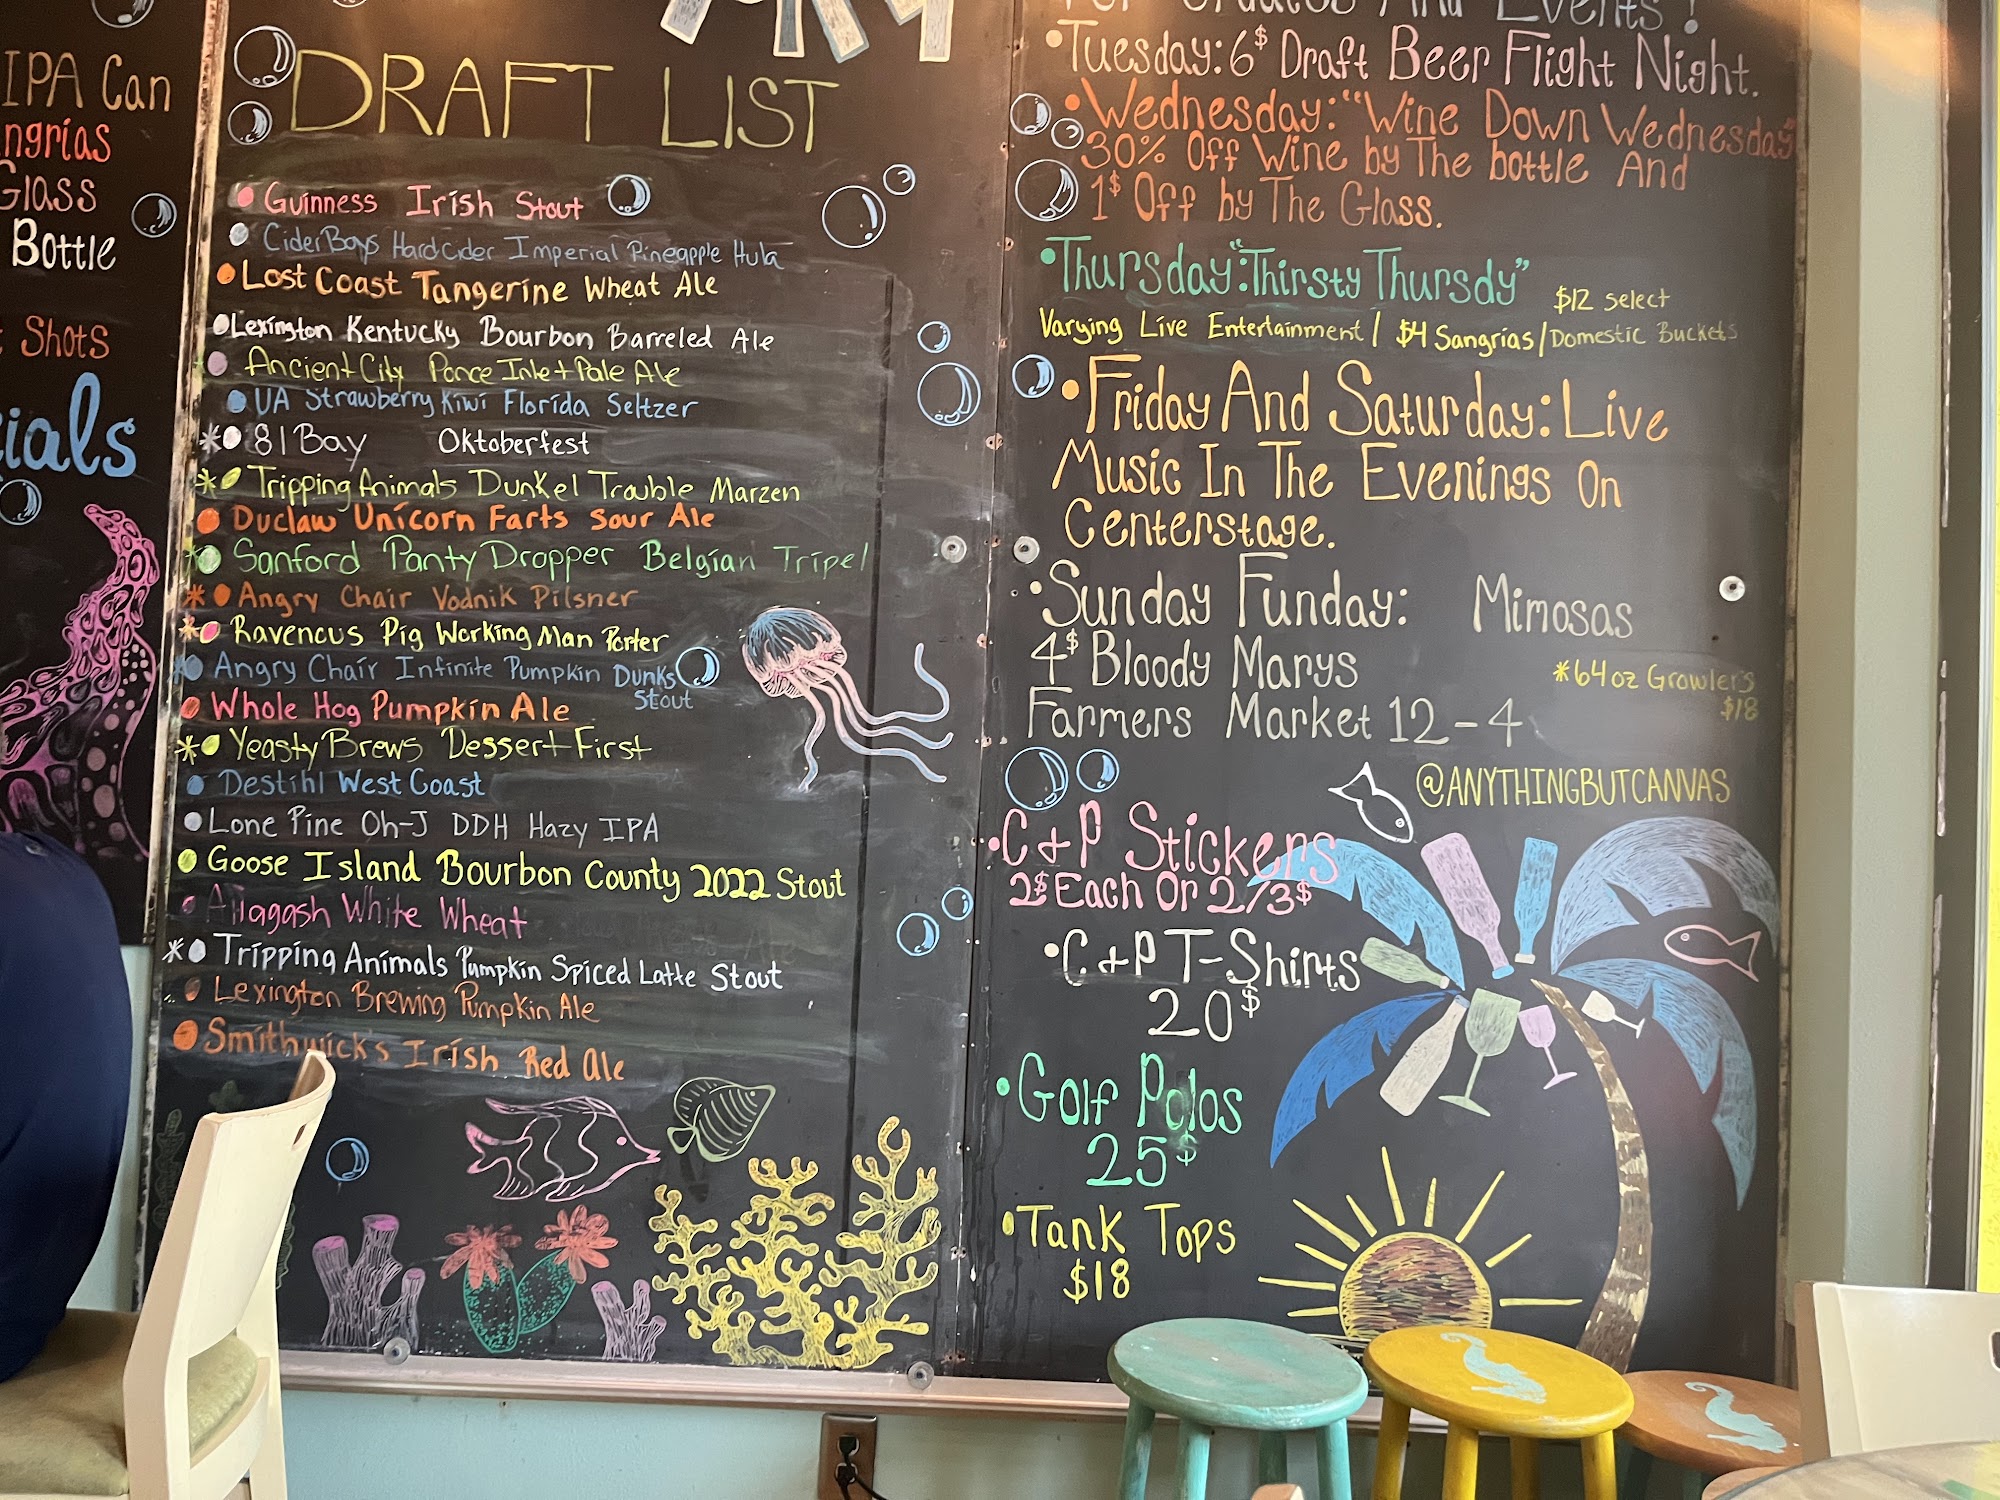 IPA Can
ngrias
Glass
Bottle
Shots
ials
DRAFT LIST
Guinness Irish Stout
CiderBoys Hard Cider Imperial Pineapple Hula
Lost Coast Tangerine Wheat Ale
Lexington Kentucky Bourbon Barreled Ale
Ancient City Ponce Inlet Pale Ale
UA Strawberry Kiwi Florida Seltzer
* 81 Bay Oktoberfest
* Tripping Animals Dunkel Trouble Marzen
Duclaw Unicorn Farts Sour Ale
* Sanford Panty Dropper Belgian Tripel
* Angry Chair Vodnik Pilsner
* Ravenous Pig Working Man Porter
* Angry Chair Infinite Pumpkin Dunks
Stout
Whole Hog Pumpkin Ale
* Yeasty Brews Dessert First
Destihl West Coast
Lone Pine Oh-J DDH Hazy IPA
Goose Island Bourbon County 2022 Stout
Allagash White Wheat
* Tripping Animals Pumpkin Spiced Latte Stout
Lexington Brewing Pumpkin Ale
Smithwick's Irish Red Ale
And Events!
• Tuesday: 6$ Draft Beer Flight Night.
• Wednesday: "Wine Down Wednesday"
30% Off Wine by The bottle And
1$ Off by The Glass.
• Thursday: "Thirsty Thursdy"
$12 select
Varying Live Entertainment / $4 Sangrias / Domestic Buckets
• Friday And Saturday: Live
Music In The Evenings On
Centerstage.
• Sunday Funday: Mimosas
4$ Bloody Marys
*64oz Growlers
$18
Farmers Market 12-4
@ANYTHINGBUTCANVAS
• C+P Stickers
2$ Each Or 2/3$
• C+P T-Shirts
20$
• Golf Polos
25$
• Tank Tops
$18